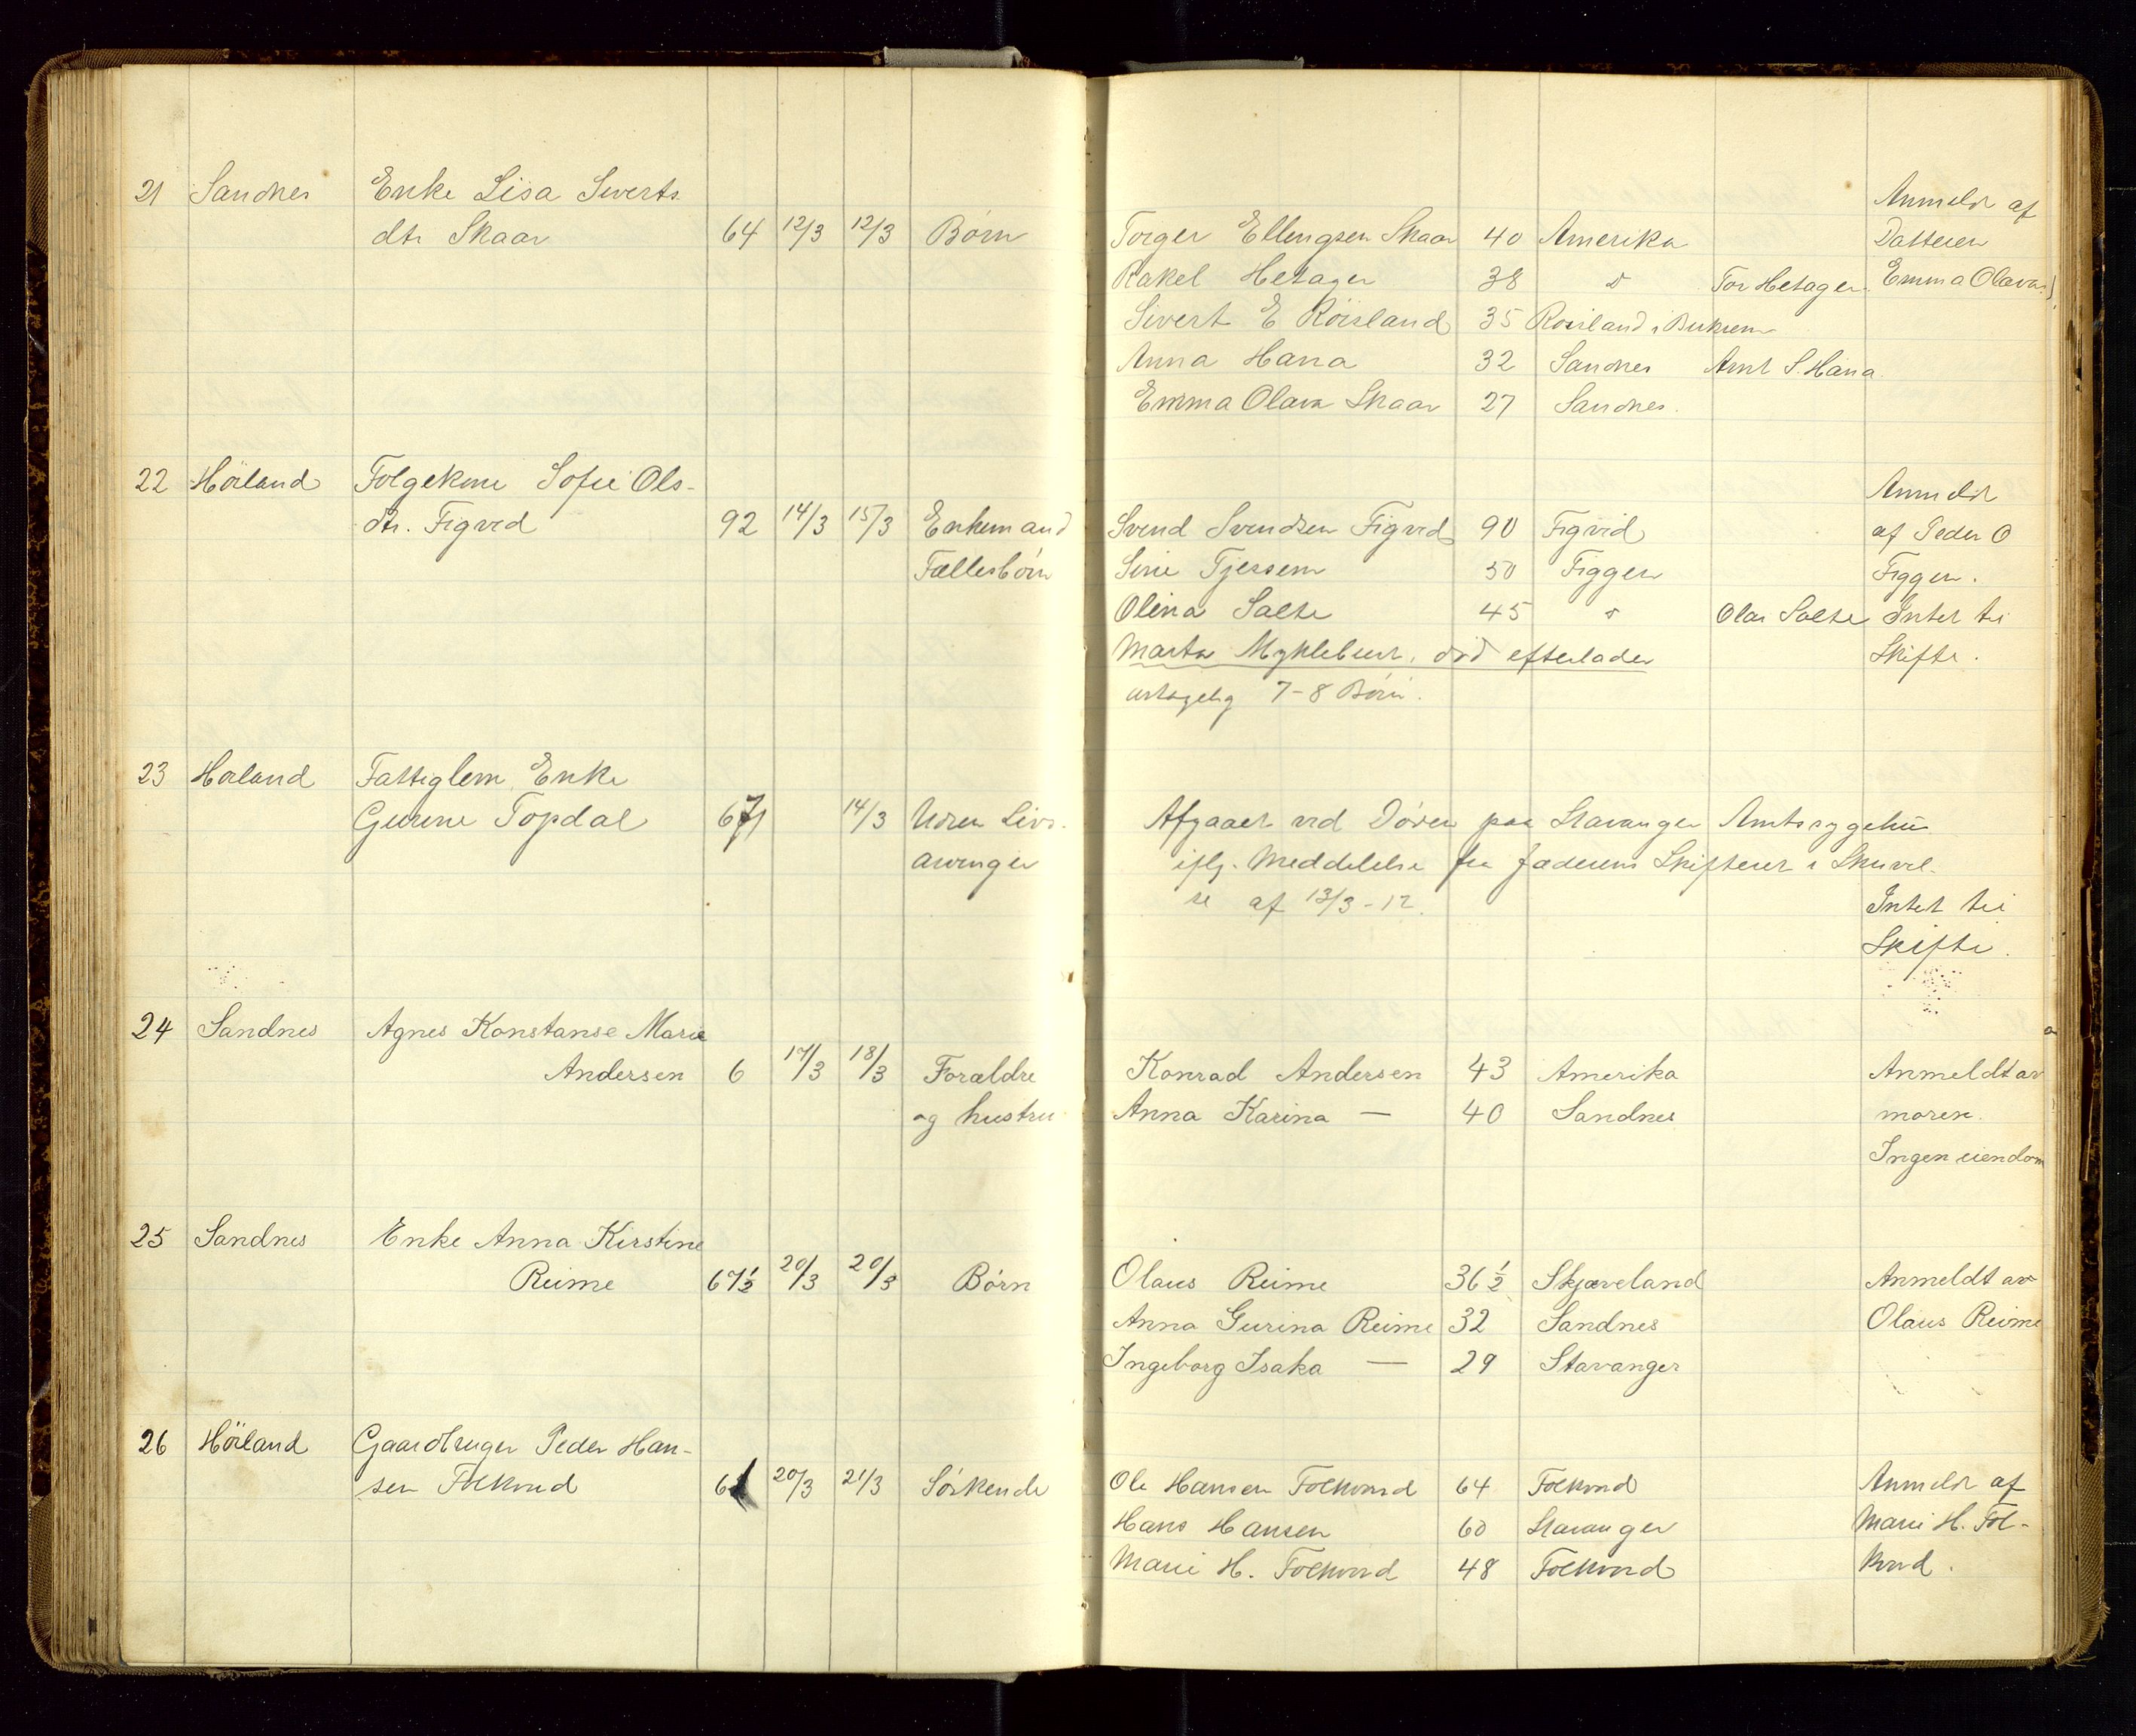 21 Sandnes Enke Lisa Siverts
dtr Skaar 64 12/3 12/3 Børn Torger Ellengsen Skaar 40 Amerika Anmeldt af
Datteren
Rakel Hetager 38 d Tor Hetager Emma Olava
Sivert E Röisland 35 Rosiland i
Anna Hana 32 Sandnes Arnt S. Hana
Emma Olava Skaar 27 Sandnes.
22 Höiland Folgekone Sofie Ols-
dtr. Figved 92 14/3 15/3 Enkemand Svend Svendsen Figved 90 Figved Anmeldt
af Peder O
Fællesbørn Sirie Tjessem 50 Figgen Figgen.
Olina Salte 45 d Olai Salte Intet til
Marta Myklebust, död efterlader Skifte.
antagelig 7-8 Børn.
23 Høiland Fattiglem Enke
Gurine Topdal 67 14/3 Uden Livs-
arvinger
Afgaaet ved Døden paa Stavanger Amtssygehus
iflg. Meddelelse fra Jæderens Skifteret i Skrivel-
se af 13/3-12.
Intet til
Skifte.
24 Sandnes Agnes Konstanse Marie
Andersen 6 17/3 18/3 Forældre Konrad Andersen 43 Amerika Anmeldt av
og hustru Anna Karina — 40 Sandnes moren.
Ingen eiendom
25 Sandnes Enke Anna Kirstine
Reime 67½ 20/3 20/3 Børn Olaus Reime 36½ Skjæveland Anmeldt av
Anna Gurina Reime 32 Sandnes Olaus Reime
Ingeborg Isaka — 29 Stavanger
26 Höiland Gaardbruger Peder Han-
sen Folkvord 61 20/3 21/3 Søskende Ole Hansen Folkvord 64 Folkvord Anmeldt af
Hans Hansen 60 Stavanger Marie H. Fol-
Marie H. Folkvord 48 Folkvord kvord.